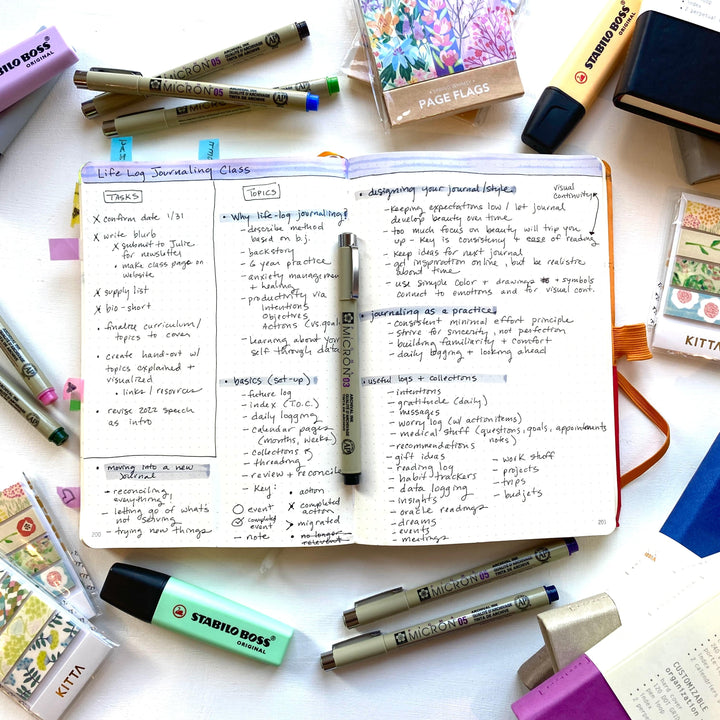 Life Log Journaling Class
TASKS
X confirm date 1/31
X write blurb
X submit to Julie
for newsletter
• make class page on
website
X supply list
X bio-short
• finalize curriculum/
topics to cover
• create hand-out w/
topics explained +
visualized
• links/resources
• revise 2022 speech
as intro
• moving into a new
journal
- reconciling
everything,
- letting go of what's
not serving
- trying new things
200
TOPICS
• Why life-log journaling?
- describe method
based on b.j.
- backstory
- 6 year practice
- anxiety management
+ healing
- productivity via
Intentions
Objectives
Actions (vs. goals
- Learning about your
self through data
• basics (set-up)
- future log
- index (T.O.C.)
- daily logging
- calendar pages
(months, weeks)
- collections &
- threading
- review + reconcile
- Key:
○ event
completed
event
- note
• action
X completed
action
> migrated
• no longer
relevant
• designing your journal/style
visual
continuity
- Keeping expectations low / let journal
develop beauty over time
- too much focus on beauty will trip you
up - Key is consistency + ease of reading
- Keep ideas for next journal
- get inspiration online, but be realistic
about time
- use simple color + drawings + symbols
connect to emotions and for visual cont.
• journaling as a practice
- Consistent minimal effort principle
- strive for sincerity, not perfection
- building familiarity + comfort
- daily logging + looking ahead
• useful logs + collections
- intentions
- gratitude (daily)
- messages
- worry log (w/ action items)
- medical stuff (questions, goals, appointments
notes)
- recommendations
- gift ideas
- reading log
- habit trackers
- data logging
- insights
- oracle readings
- dreams
- events
- meetings
- work stuff
- projects
- trips
- budjets
201
STABILO BOSS
ORIGINAL
MICRON 05
MICRON 05
PAGE FLAGS
STABILO BOSS
ORIGINAL
KITTA
MICRON 03
STABILO BOSS
ORIGINAL
KITTA
MICRON 05
MICRON 05
CUSTOMIZABLE
organization